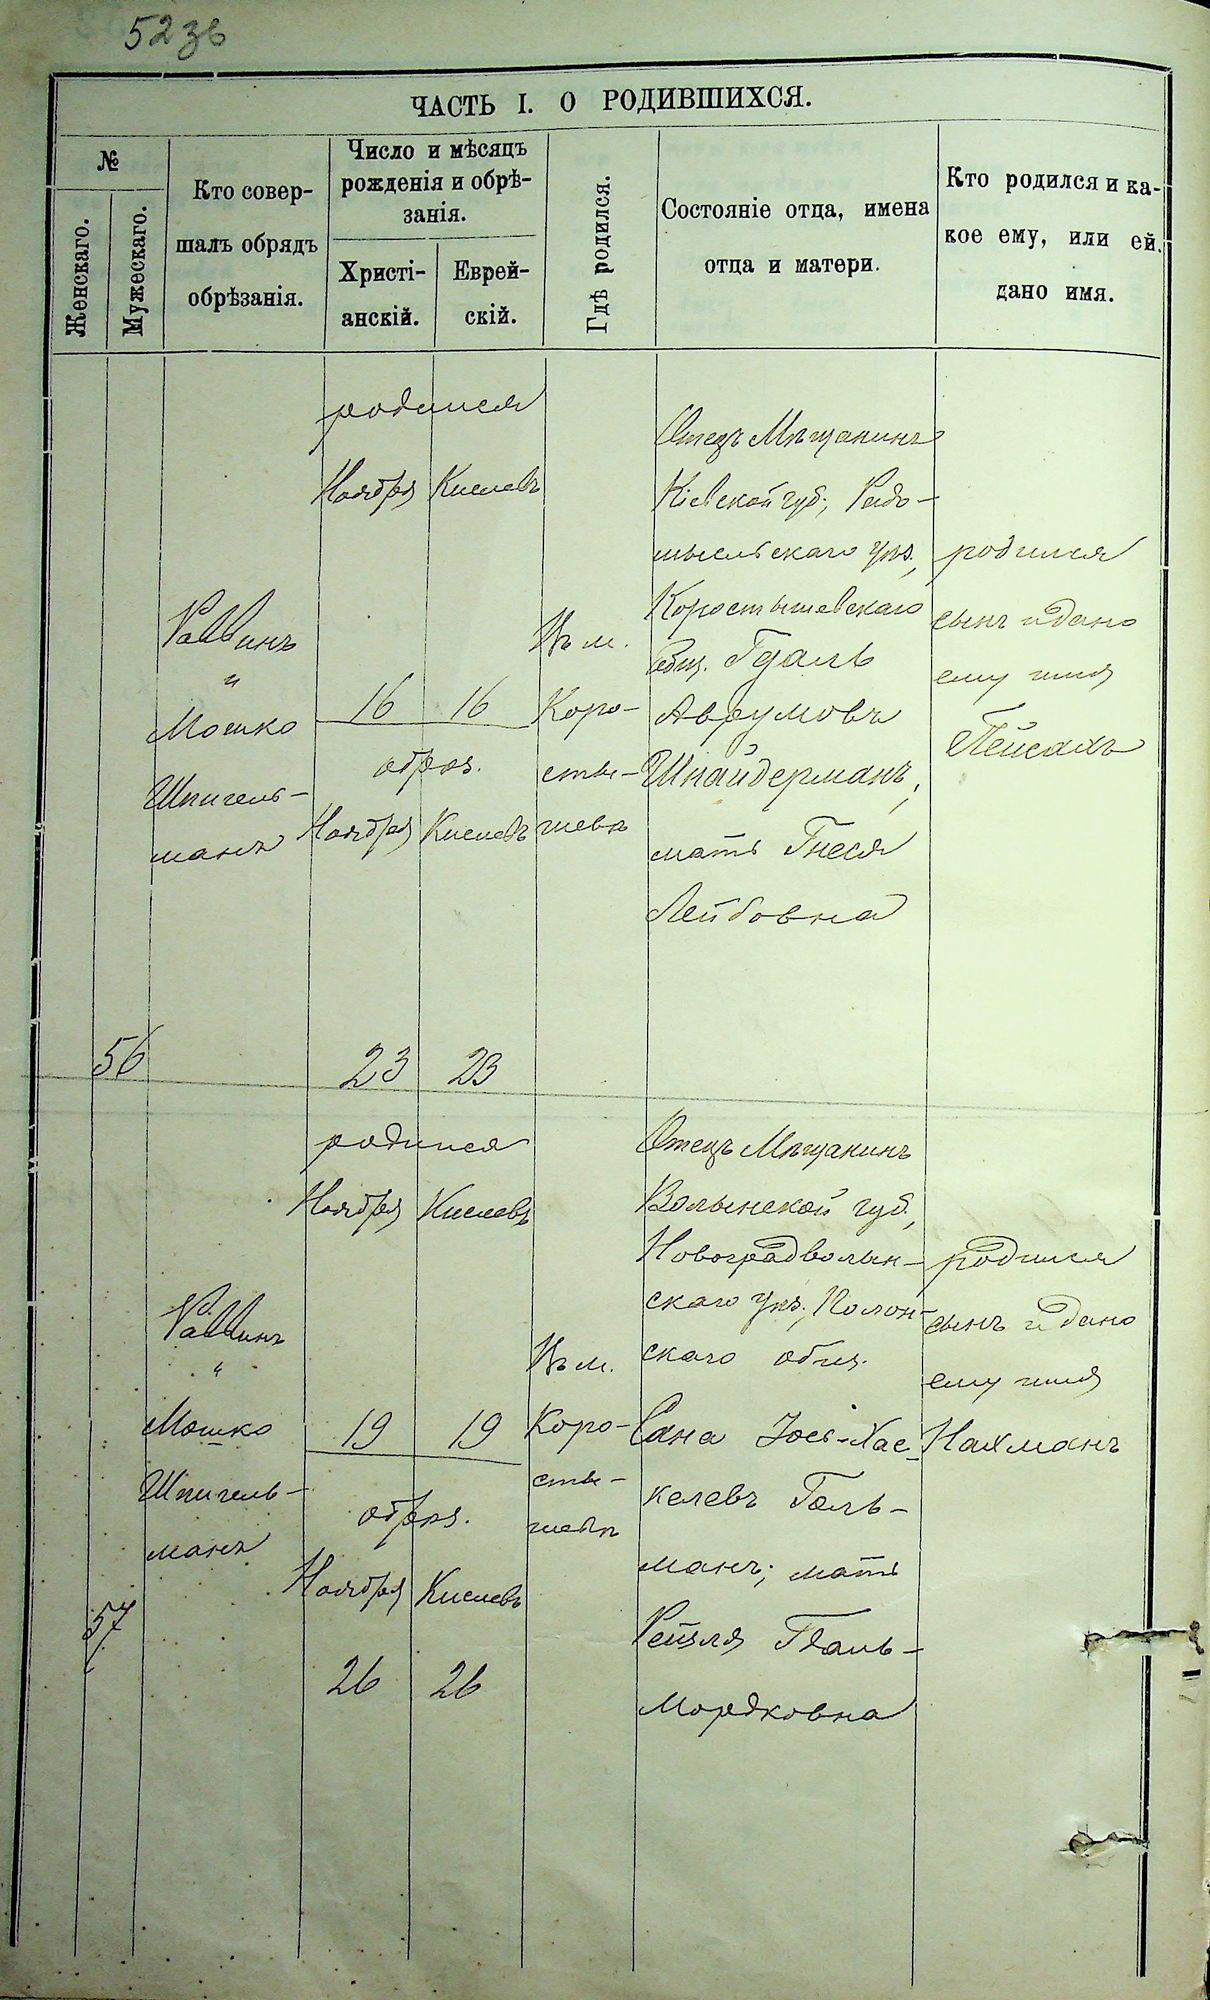 523в
ЧАСТЬ I. О РОДИВШИХСЯ.
№
Женскаго.
Мужескаго.
Кто совер-
шалъ обрядъ
обрѣзанія.
Число и мѣсяцъ
рожденія и обрѣ-
занія.
Христі-
анскій.
Еврей-
скій.
Гдѣ родился.
Состояніе отца, имена
отца и матери.
Кто родился и ка-
кое ему, или ей,
дано имя.
56
Раввинъ
и
Мошко
Шпигель-
манъ
родился
Ноября Кислевъ
16 16
обрѣз.
Ноября Кислевъ
23 23
Въ м.
Коро-
сты-
шевѣ
Отецъ Мѣщанинъ
Кіевской губ., Радо-
мысльскаго уѣз.,
Коростышевскаго
общ. Гдаль
Аврумовъ
Шнайдерманъ,
мать Гнеся
Лейбовна
родился
сынъ и дано
ему имя
Пейсахъ
57
Раввинъ
и
Мошко
Шпигель-
манъ
родился
Ноября Кислевъ
19 19
обрѣз.
Ноября Кислевъ
26 26
Въ м.
Коро-
сты-
шевѣ
Отецъ Мѣщанинъ
Волынской губ.,
Новоградволын-
скаго уѣз., Полон-
скаго общ.
Сана Іось-Хас-
келевъ Галь-
манъ; мать
Рейзля Гдаль-
Мордковна
родился
сынъ и дано
ему имя
Нахманъ